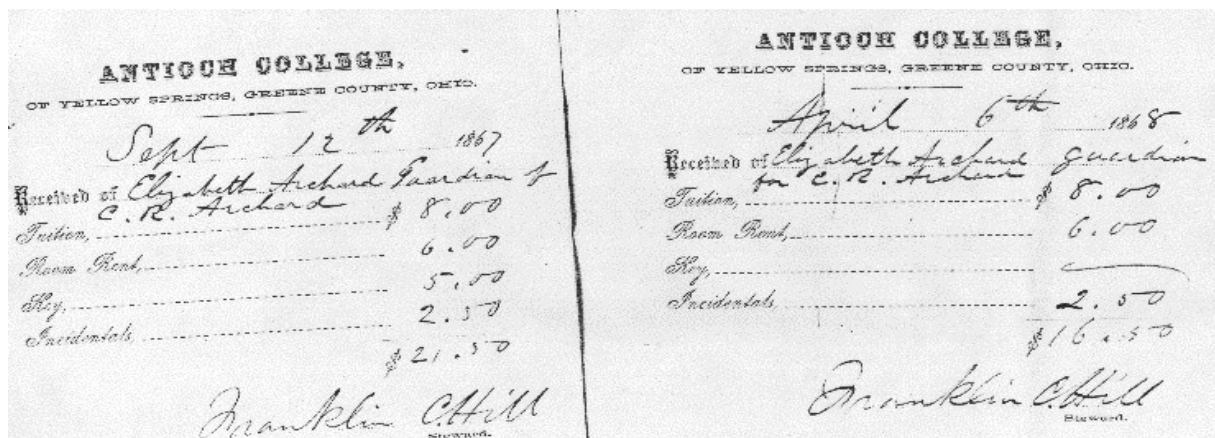 ANTIOCH COLLEGE,
OF YELLOW SPRINGS, GREENE COUNTY, OHIO.
Sept 12th 1867
Received of Elizabeth Archard Guardian of
C. R. Archard
Tuition, $ 8.00
Room Rent, 6.00
Key, 5.00
Incidentals, 2.50
$21.50
Franklin C. Hill
Steward.
ANTIOCH COLLEGE,
OF YELLOW SPRINGS, GREENE COUNTY, OHIO.
April 6th 1868
Received of Elizabeth Archard guardian
for C. R. Archard
Tuition, $ 8.00
Room Rent, 6.00
Key,
Incidentals, 2.50
$16.50
Franklin C. Hill
Steward.